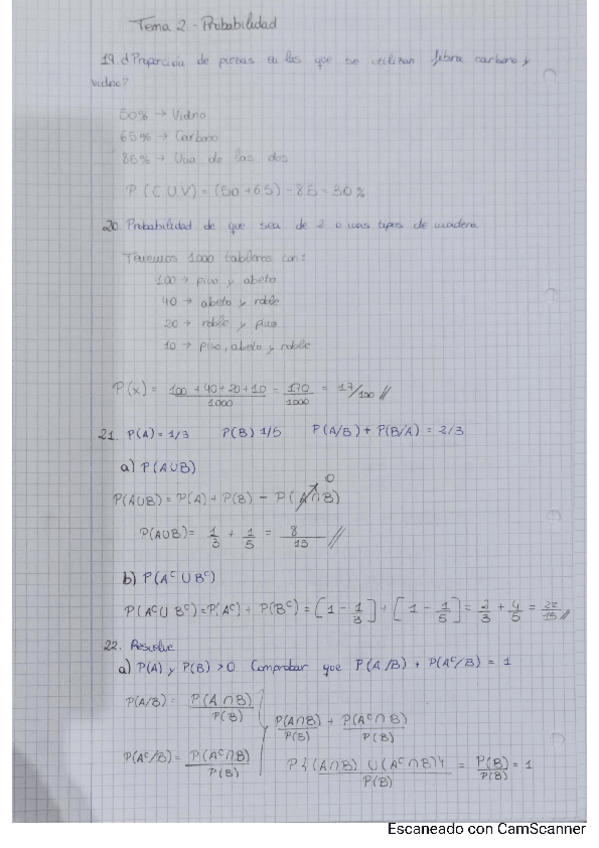 Tema 2 - Probabilidad
19. ¿Proporción de piezas en las que se utilizan fibra carbono y
vidrio?
50% → Vidrio
65% → Carbono
85% → Una de las dos
P (C ∪ V) = (50 + 65) - 85 = 30%
20. Probabilidad de que sea de 2 o mas tipos de madera
Tenemos 1000 tableros con:
100 → pino y abeto
40 → abeto y roble
20 → roble y pino
10 → pino, abeto y roble
P(x) = 100 + 40 + 20 + 10 / 1000 = 170 / 1000 = 17/100 //
21. P(A) = 1/3 P(B) 1/5 P(A/B) + P(B/A) = 2/3
a) P(A∪B)
P(A∪B) = P(A) + P(B) - P(A∩B) 0
P(A∪B) = 1/3 + 1/5 = 8/15 //
b) P(Aᶜ ∪ Bᶜ)
P(Aᶜ∪Bᶜ) = P(Aᶜ) + P(Bᶜ) = [1 - 1/3] + [1 - 1/5] = 2/3 + 4/5 = 22/15 //
22. Resuelve
a) P(A) y P(B) > 0 Comprobar que P(A/B) + P(Aᶜ/B) = 1
P(A/B) = P(A∩B) / P(B)
P(A∩B) / P(B) + P(Aᶜ∩B) / P(B)
P(Aᶜ/B) = P(Aᶜ∩B) / P(B)
P{(A∩B) ∪ (Aᶜ∩B)} / P(B) = P(B) / P(B) = 1
Escaneado con CamScanner